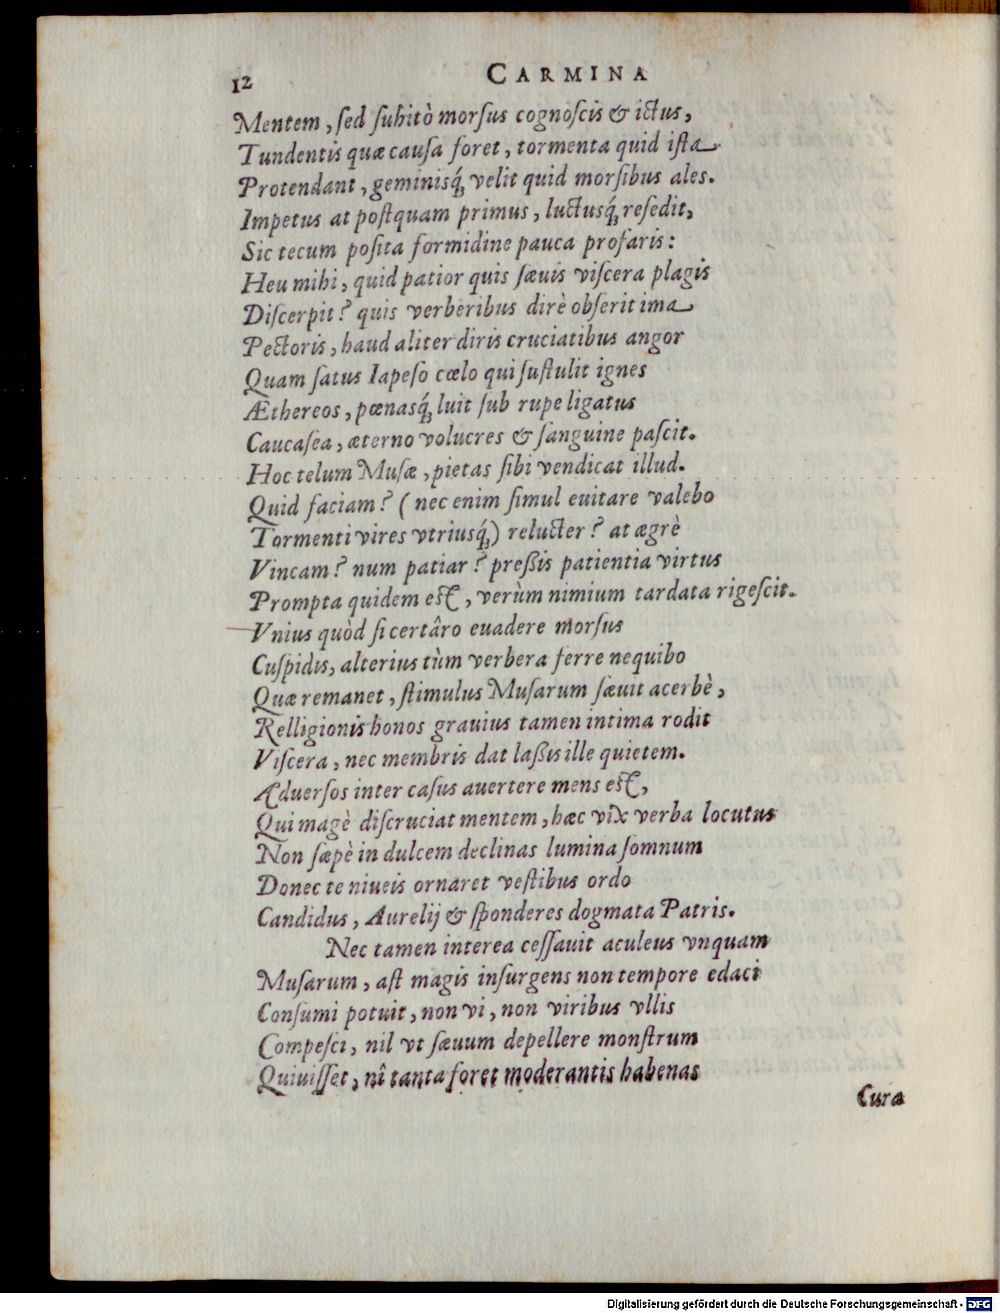 12 CARMINA
Mentem, sed subitò morsus cognoscis & ictus,
Tundentis quæ causa foret, tormenta quid ista
Protendant, geminisq́; velit quid morsibus ales.
Impetus at postquam primus, luctusq́; resedit,
Sic tecum posita formidine pauca profaris:
Heu mihi, quid patior quis sævis viscera plagis
Discerpit? quis verberibus dirè obserit ima
Pectoris, haud aliter diris cruciatibus angor
Quam satus Iapeso cœlo qui sustulit ignes
Æthereos, pœnasq́; luit sub rupe ligatus
Caucasea, æterno volucres & sanguine pascit.
Hoc telum Musæ, pietas sibi vendicat illud.
Quid faciam? (nec enim simul euitare valebo
Tormenti vires vtriusq́;) relucter? at ægrè
Vincam? num patiar? preßis patientia virtus
Prompta quidem est, verùm nimium tardata rigescit.
Vnius quòd si certâro euadere morsus
Cuspidis, alterius tùm verbera ferre nequibo
Quæ remanet, stimulus Musarum sæuit acerbè,
Relligionis honos grauius tamen intima rodit
Viscera, nec membris dat laßis ille quietem.
Aduersos inter casus auertere mens est,
Qui magè discruciat mentem, hæc vix verba locutus
Non sæpè in dulcem declinas lumina somnum
Donec te niueis ornaret vestibus ordo
Candidus, Aurelij & sponderes dogmata Patris.
Nec tamen interea cessauit aculeus vnquam
Musarum, ast magis insurgens non tempore edaci
Consumi potuit, non vi, non viribus vllis
Compesci, nil vt sæuum depellere monstrum
Quiuisset, nî tanta foret moderantis habenas
Cura
Digitalisierung gefördert durch die Deutsche Forschungsgemeinschaft - DFG